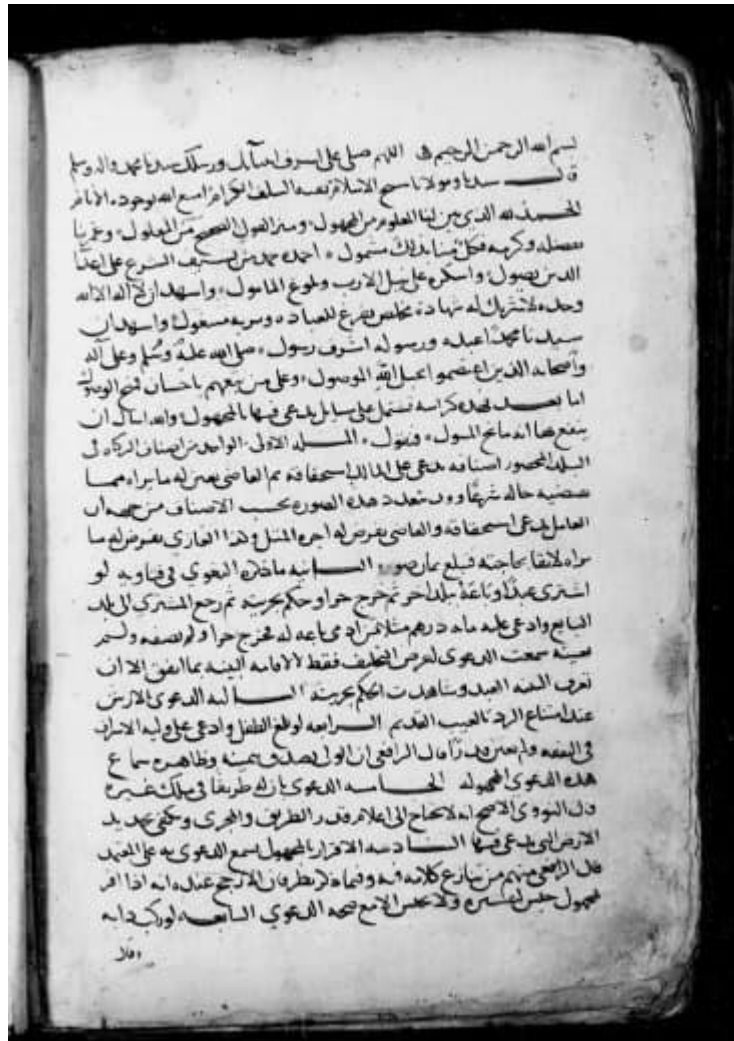 بسم الله الرحمن الرحيم اللهم صلى على اشرف انبيائك ورسلك سيدنا محمد واله وسلم
قال سيدنا ومولانا شيخ الاسلام بقية السلف الكرام امتع الله بوجوده الانام
الحمد لله الذي بين لنا المعلوم من المجهول وميز القول الصحيح من المعلول
بفضله وكرمه فكل منا بذلك مشمول احمده حمد من بسيف الشرع على اعدا
الدين يصول واشكره على نيل الارب وبلوغ المامول واشهد ان لا اله الا الله
وحده لا شريك له شهادة مخلص تفرغ للعبادة وسربه مشغول واشهد ان
سيدنا محمدا عبده ورسوله اشرف رسول صلى الله عليه وسلم وعلى اله
واصحابه الذين اعتصموا بحبل الله الموصول وعلى من تبعهم باحسان
اما بعد فهذه كراسة تشتمل على مسايل يدعى فيها بالمجهول والله اسال ان
ينفع بها انه مانح السول المسلة الاولى الواحد من اصناف الزكاة في
البلد المحصور اصنافه يدعي على المالك استحقاقه ثم القاضي يعين له ما يراه مما
يقتضيه حاله شرعا وقد تتعدد هذه الصورة بحسب الاصناف من جهة ان
العامل يدعي استحقاقه والقاضي يفرض له اجرة المثل وكذا الغازي يفرض له ما
يراه لائقا بحاجته فيبلغ ثمان صور الثانية ما ذكره البغوي في فتاويه لو
اشترى عبدا وباعه ببلد اخر ثم خرج حرا وحكم بحريته ثم رجع المشتري الى بلد
البايع وادعى عليه ماية درهم مثلا ثمن ادمي باعه له فخرج حرا ولم يصفه ولم
يعينه سمعت الدعوى لغرض التحليف فقط لا لاقامة البينة بما اتفق الا ان
تعرف البينة العبد وشاهدت الحكم بحريته الثالثة الدعوى بالارش
عند امتناع الرد بالعيب القديم الرابعة لو بلغ الطفل وادعى على وليه الاسراف
في النفقة ولم يعين قدرا قال الرافعي ان الولي يصدق بيمينه وظاهره سماع
هذه الدعوى المجهولة الخامسة الدعوى بان له طريقا في ملك غيره
قال النووي الاصح انه لا يحتاج الى اعلام قدر الطريق والمجرى ويكفي تحديد
الارض التي يدعى فيها السادسة الاقرار بالمجهول تسمع الدعوى به على المعتمد
قال الرافعي منهم من تنازع كلامه فيه
بمجهول حبس لتفسيره صحة الدعوى السابعة لو ركب دابة
وقال